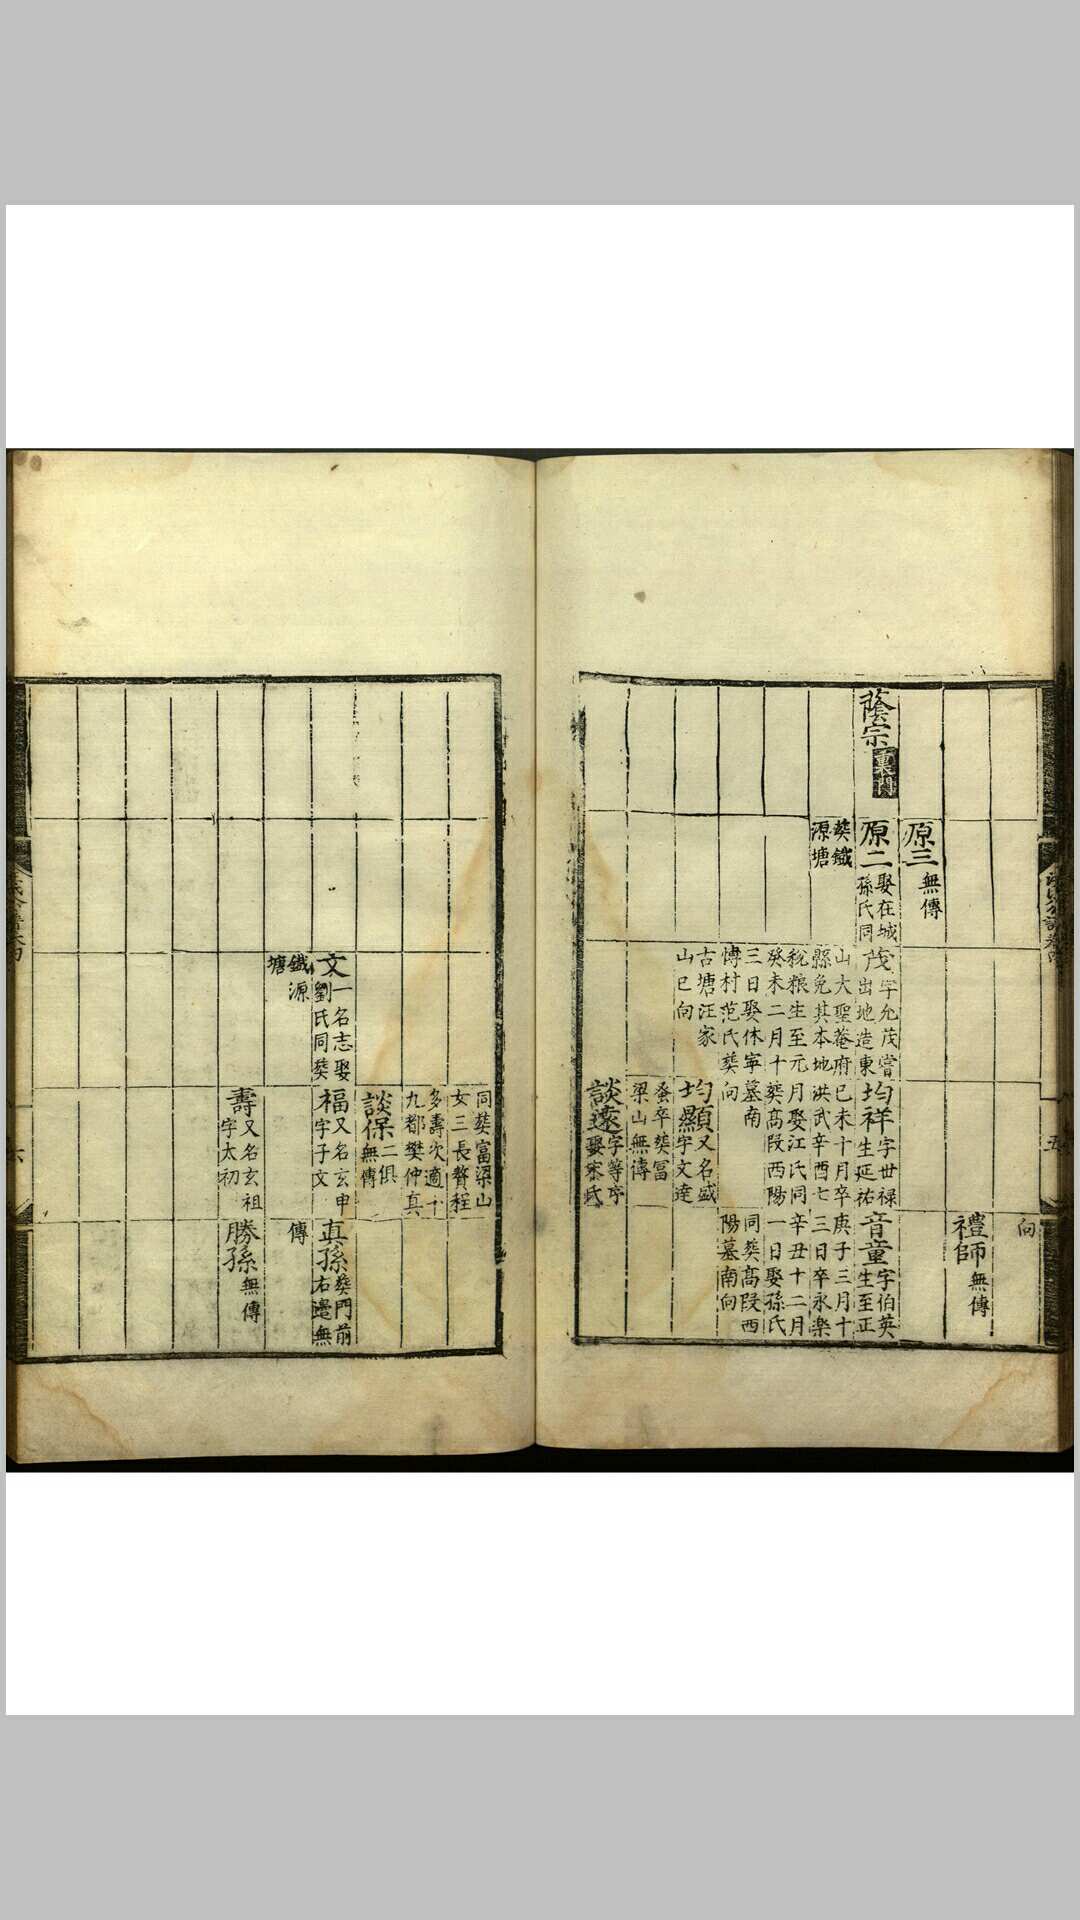 蔭宗
裏門
原三
無傳
原二
娶在城
孫氏同
葬鐵
源塘
茂
字允茂嘗
出地造東
山大聖菴府
縣免其本地
稅粮生至元
癸未二月十
三日娶休寧
博村范氏葬
古塘汪家
山巳向
均祥
字世禄
生延祐
己未十月卒
洪武辛酉七
月娶江氏同
葬高段西陽
墓南
向
均顯
又名盛
字文逹
蚤卒葬富
梁山無傳
談遠
字等亨
娶宋氏
向
禮師
無傳
音童
字伯英
生至正
庚子三月十
三日卒永樂
辛丑十二月
一日娶孫氏
同葬高段西
陽墓南向
五
文一
名志娶
劉氏同葬
鐵源
塘
同葬富梁山
女三長贅程
多壽次適十
九都樊仲真
談保
二俱
無傳
福
又名玄申
字子文
壽
又名玄祖
字太初
真孫
葬門前
右邉無
傳
勝孫
無傳
六